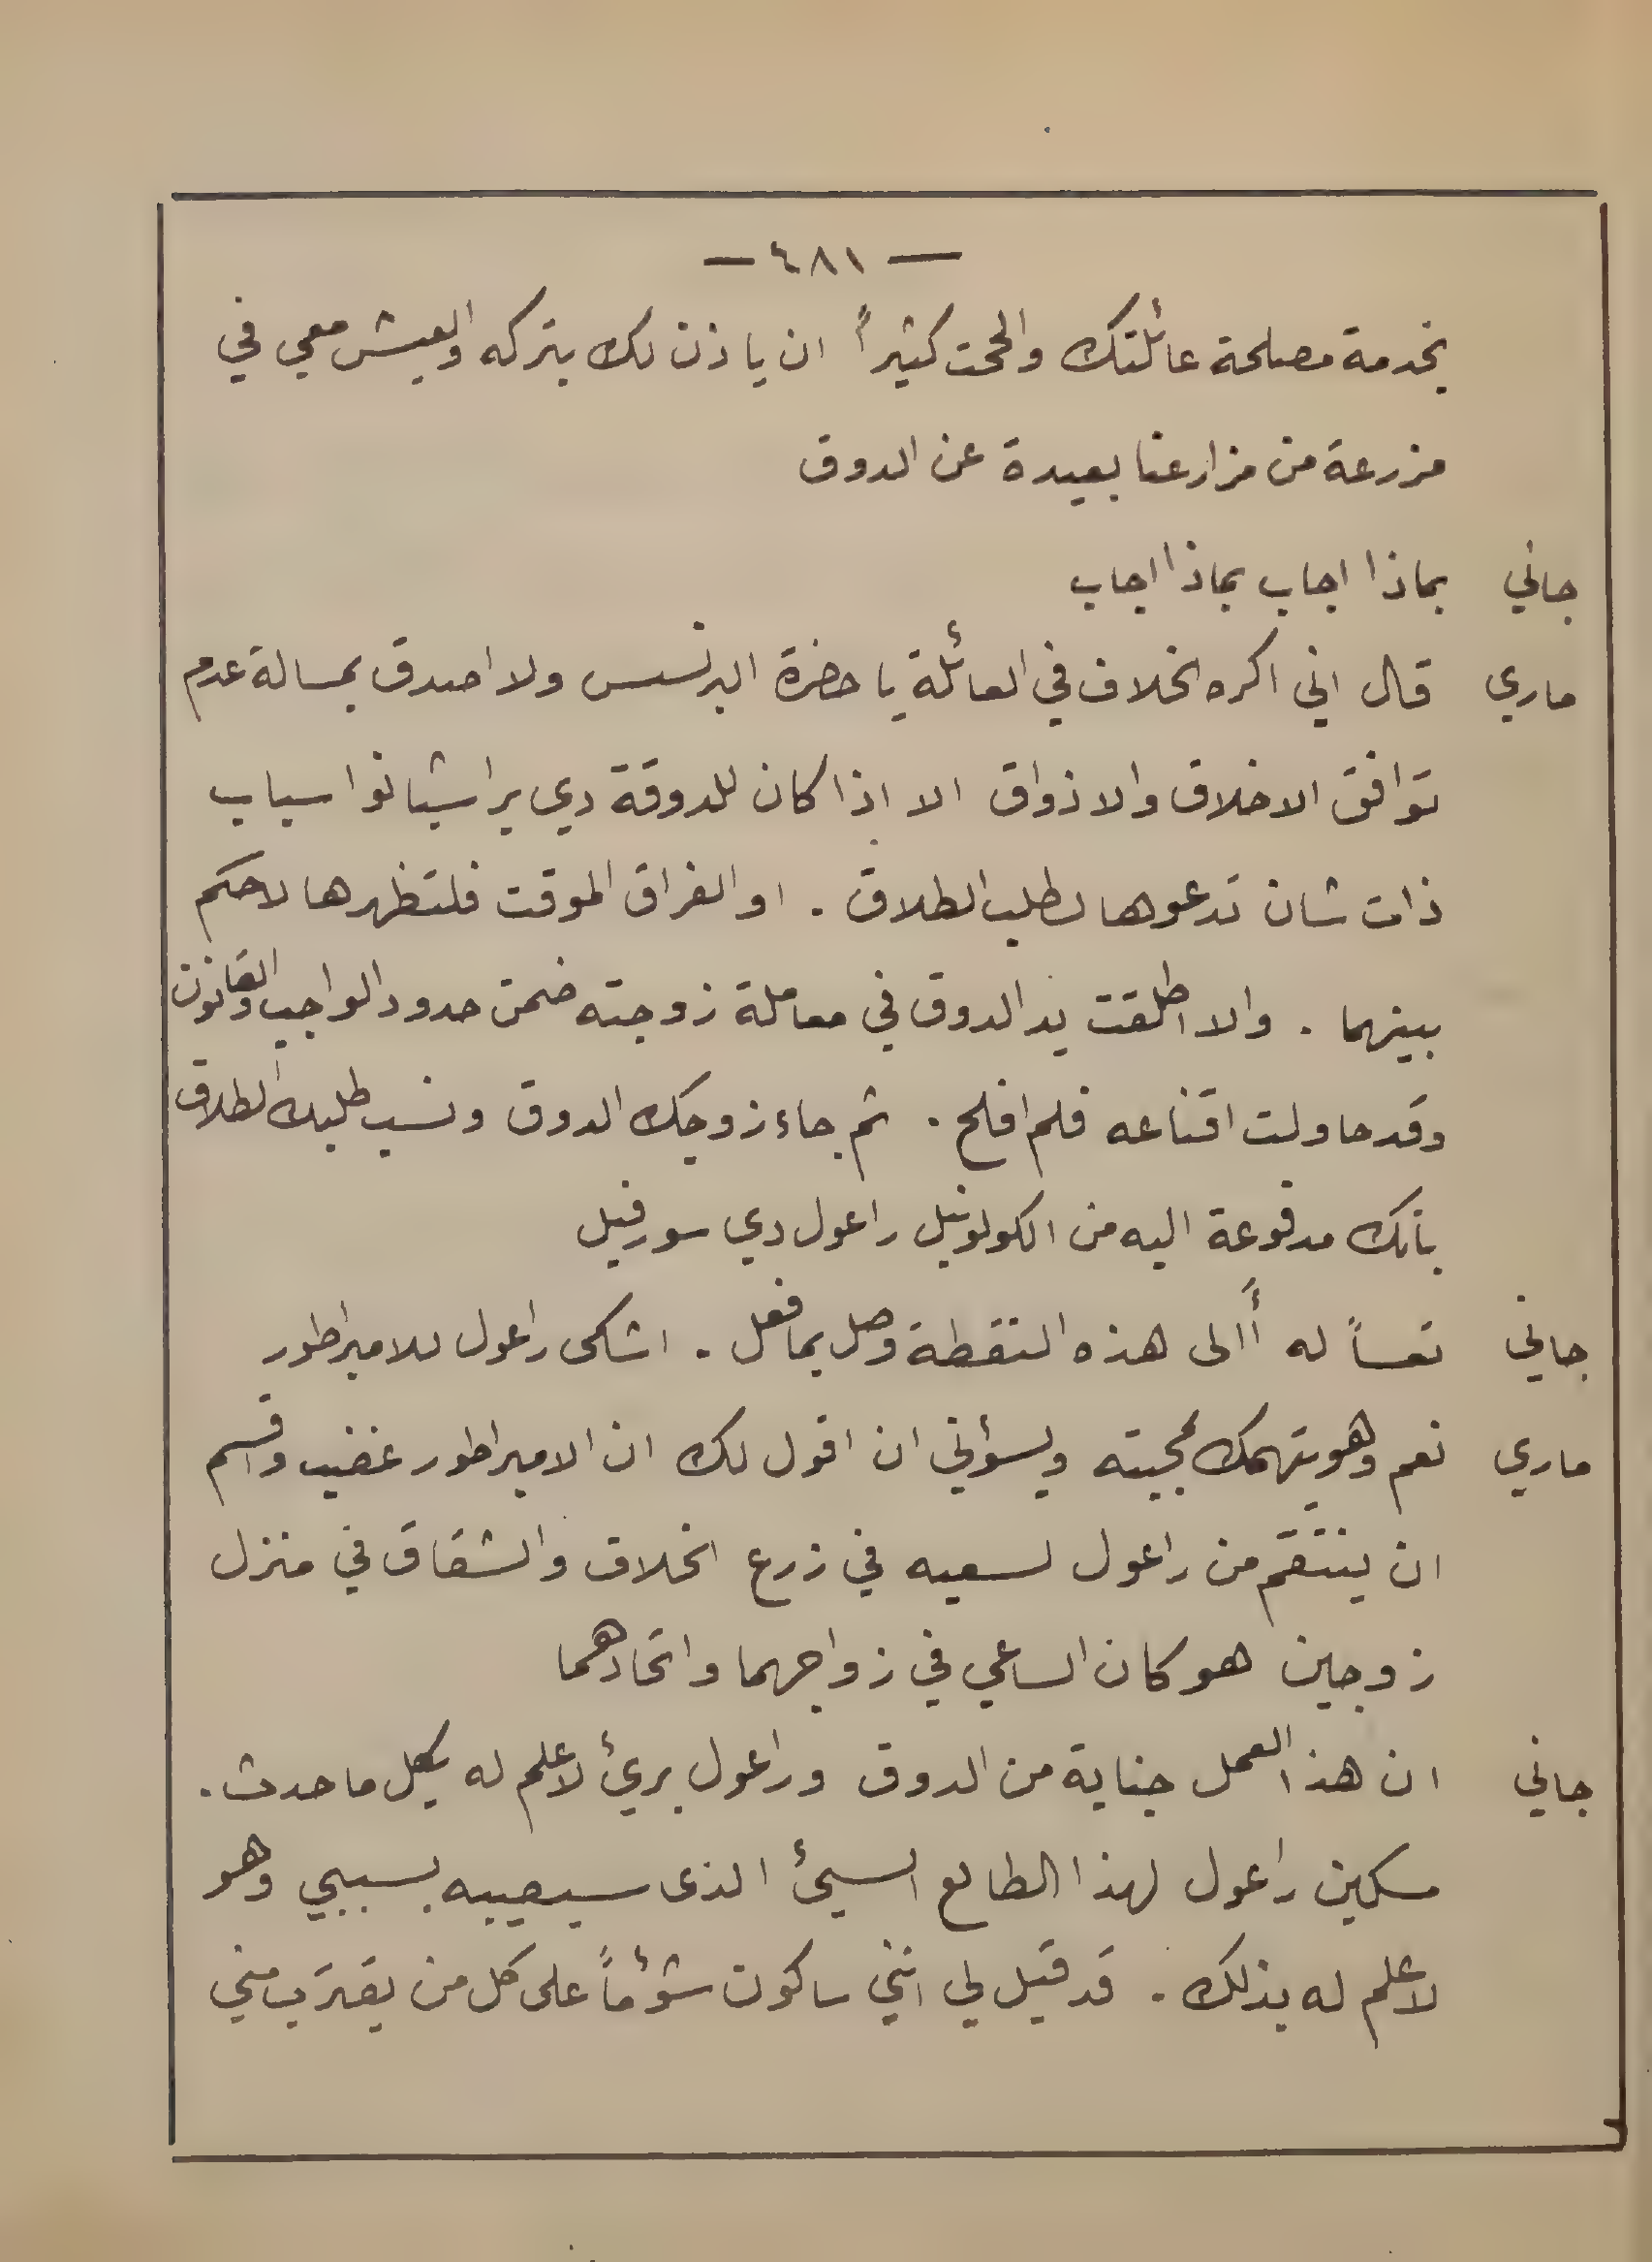 — ٤٨١ —
بخدمة مصلحة عائلتك والححت كثيراً ان ياذن لك بتركه والعيش معي في
مزرعة من مزارعنا بعيدة عن الدوق
جاني بماذا اجاب بماذا اجاب
ماري قال اني اكره الخلاف في العائلة يا حضرة البرنسس ولا اصدق بمسالة عدم
توافق الاخلاق والاذواق الا اذا كان للدوقة دي براشيانو اسباب
ذات شان تدعوها لطلب الطلاق . او الفراق الموقت فلتظهرها لاحكم
بينهما . والا اطلقت يد الدوق في معاملة زوجته ضمن حدود الواجب والقانون
وقد حاولت اقناعه فلم افلح . ثم جاء زوجك الدوق ونسب طلبك الطلاق
بانك مدفوعة اليه من الكولونيل راعول دي سورفيل
جاني تعساً له أالى هذه النقطة وصل بما فعل . اشكى راعول للامبراطور
ماري نعم وهو يتهمك بمحبته ويسؤني ان اقول لك ان الامبراطور غضب واقسم
ان ينتقم من راعول لسعيه في زرع الخلاف والشقاق في منزل
زوجين هو كان الساعي في زواجهما واتحادهما
جاني ان هذا العمل جناية من الدوق وراعول بريئ لا علم له بكل ما حدث .
مسكين راعول لهذا الطالع السيئ الذى سيصيبه بسببي وهو
لا علم له بذلك . قد قيل لي انني ساكون شؤماً على كل من يقترب مني